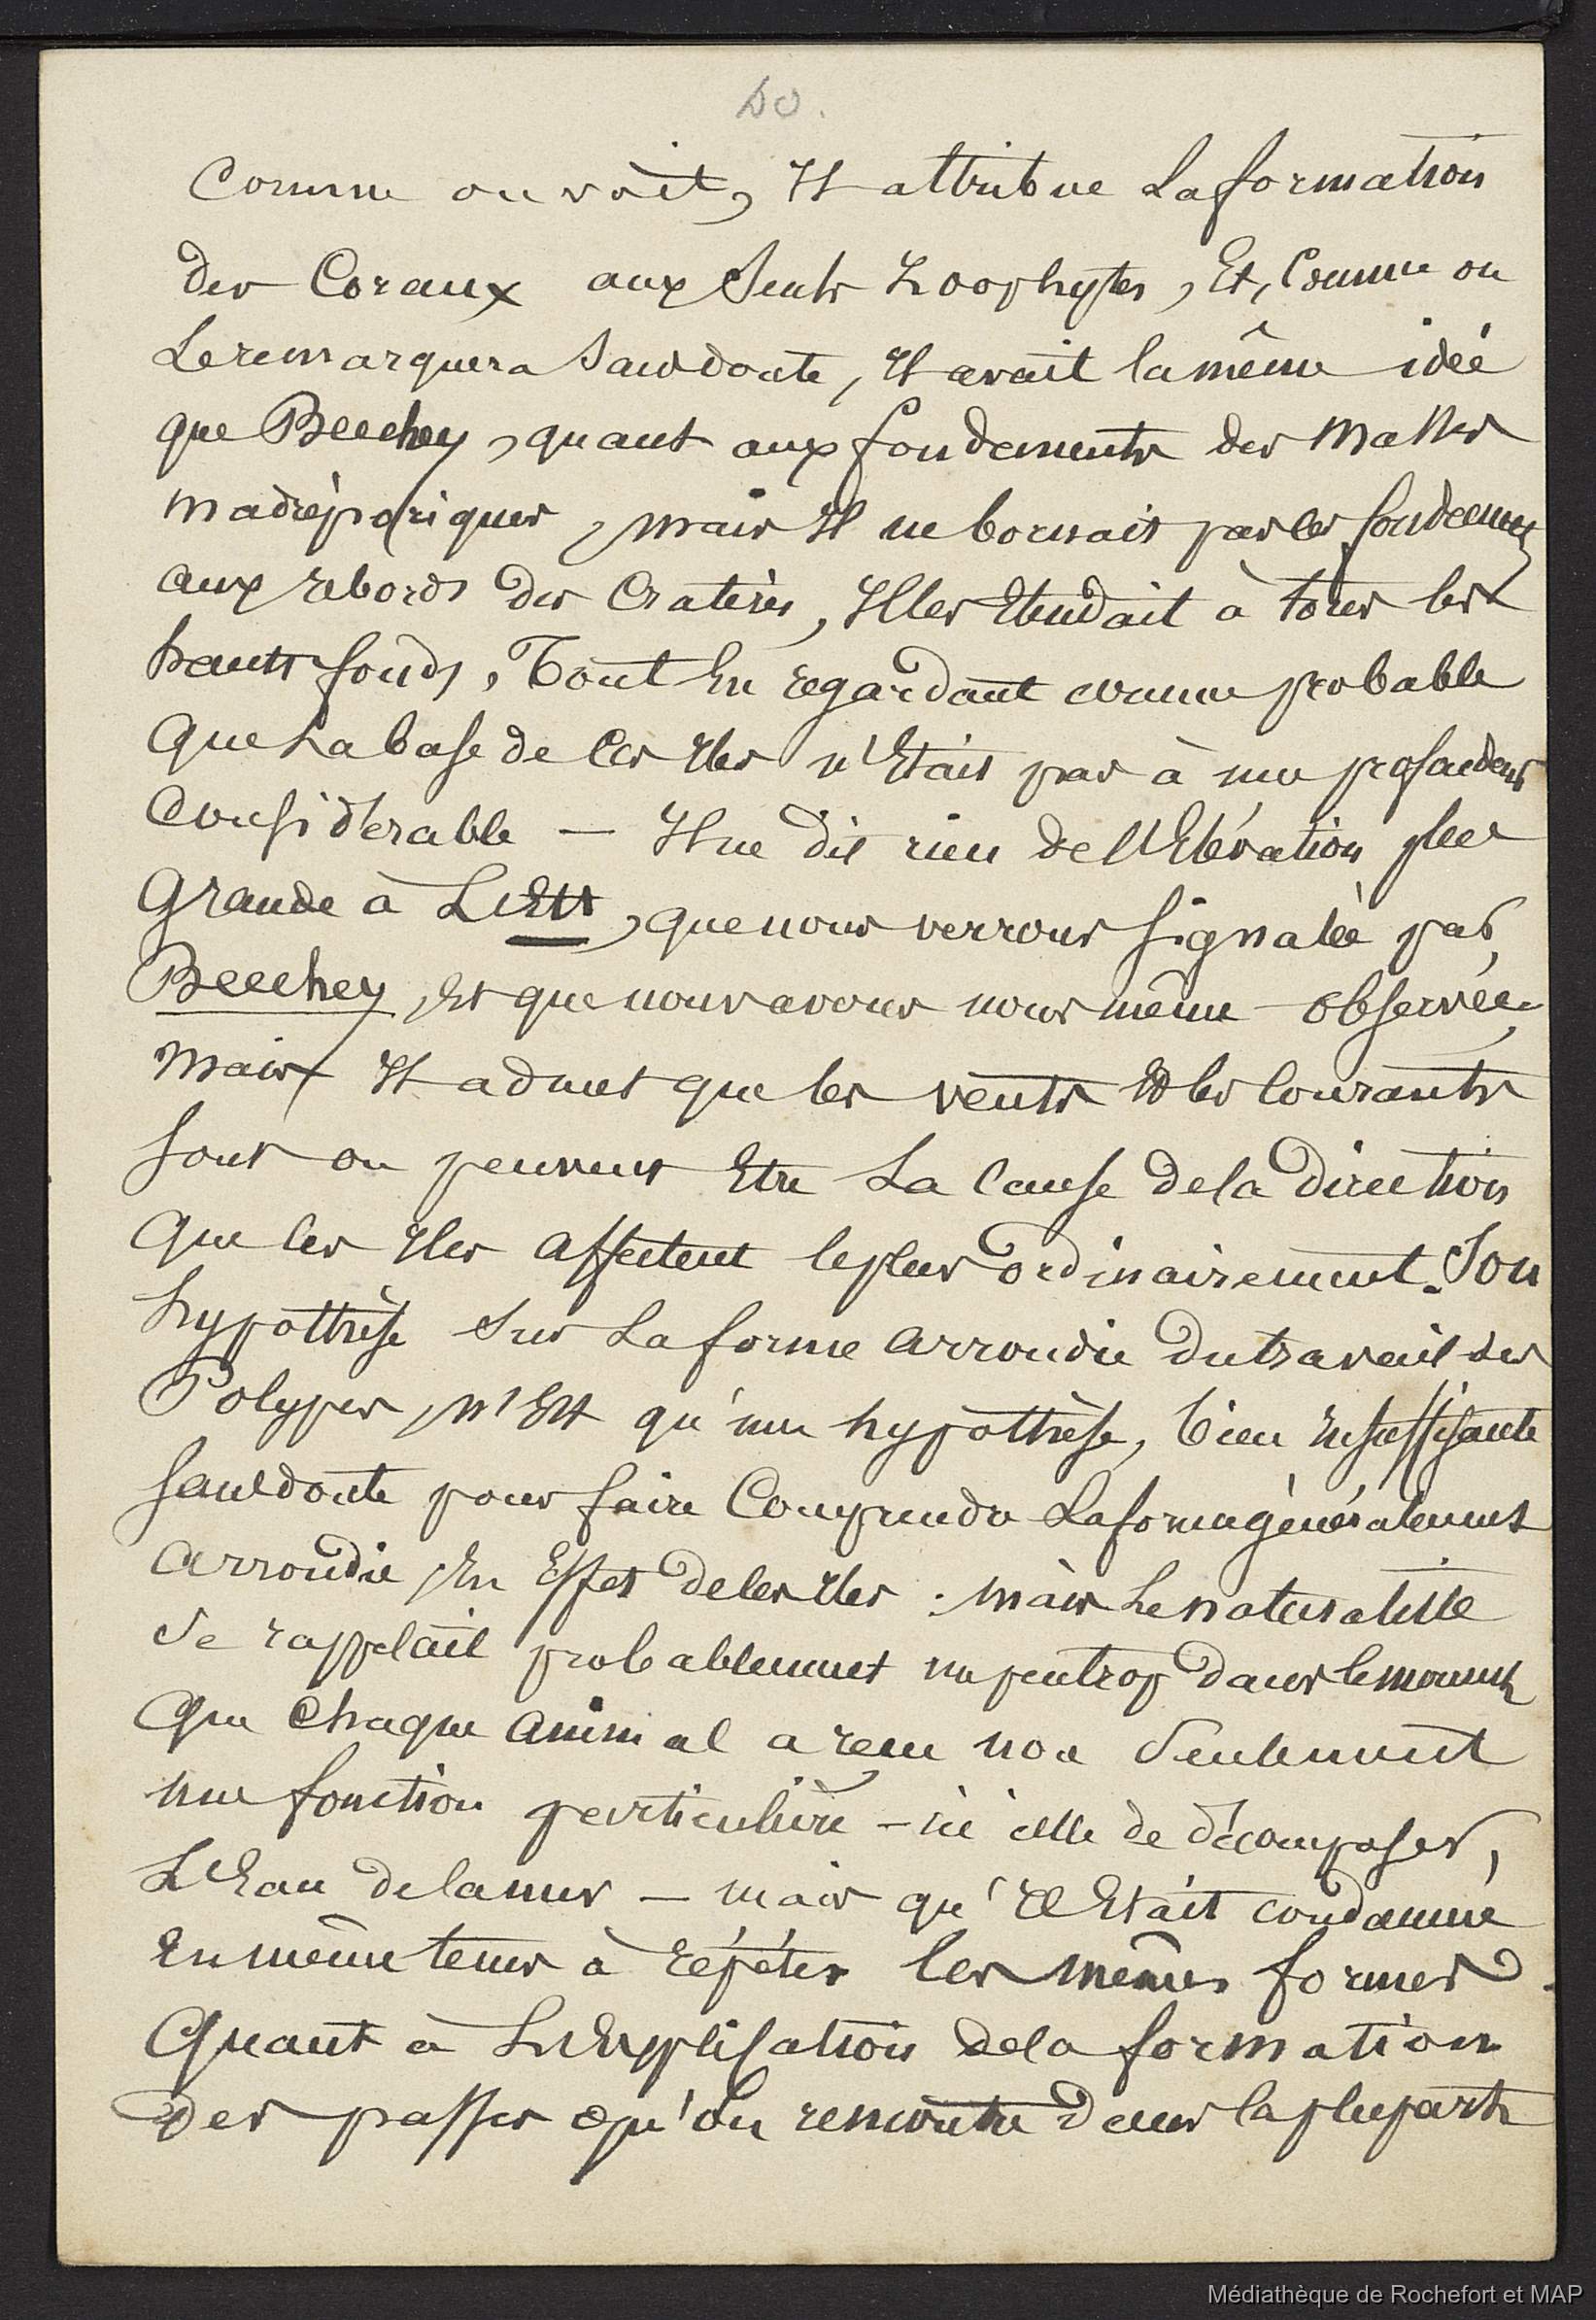 50.
Comme on voit, Il attribue La formation
des Coraux aux Seuls Zoophytes, Et, Comme on
Le remarquera Sans doute, Il avait la même idée
que Beechey, quant aux fondements des Masses
madréporiques, mais Il ne bornait pas les fondemens
aux rebords des Cratères, Il les Etendait à tous les
hauts fonds, Tout En regardant comme probable
Que La base de Ces Iles n'Etait pas à une profondeur
Considérable — Il ne dit rien de l'Elévation plus
Grande à L'Est, que nous verrons signalée par
Beechey, Et que nous avons nous même observée,
Mais Il admet que les vents Et les Courants
sont ou peuvent Etre La Cause de la Direction
Que les Iles affectent le plus ordinairement. Son
hypothèse Sur La forme arrondie du travail des
Polypes, n'Est qu'une hypothèse, bien Insuffisante
sans doute pour faire Comprendre La forme généralement
arrondie, En Effet de ces Iles : mais Le naturaliste
Se rappelait probablement un peu trop dans le moment
Que Chaque animal a reçu non Seulement
une fonction particulière - ici celle de décomposer,
L'Eau de la mer — mais qu'Il Etait condamné
En même tems à répéter les mêmes formes.
Quant à L'Explication de la formation
des passes qu'on rencontre dans la plupart
Médiathèque de Rochefort et MAP